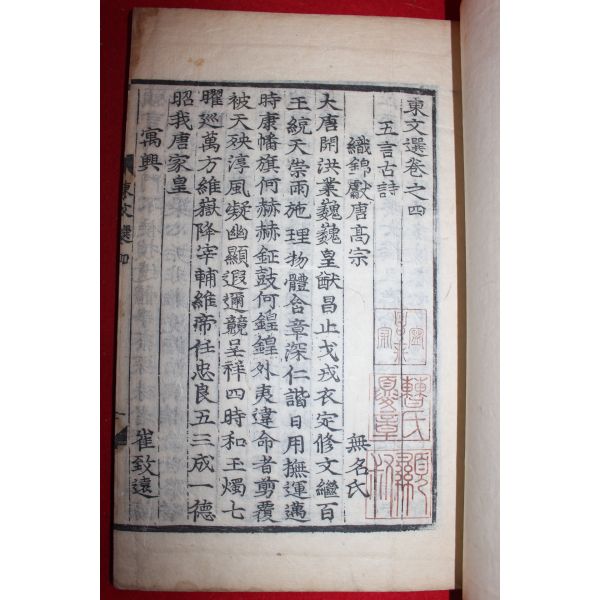 東文選卷之四
五言古詩
織錦獻唐高宗 無名氏
大唐開洪業巍巍皇猷昌止戈戎衣定修文繼百
王統天崇雨施理物體含章深仁諧日用撫運邁
時康幡旗何赫赫鉦鼓何鍠鍠外夷違命者剪覆
被天殃淳風凝幽顯遐邇競呈祥四時和玉燭七
曜巡萬方維嶽降宰輔維帝任忠良五三成一德
昭我唐家皇
寓興 崔致遠
東文選四